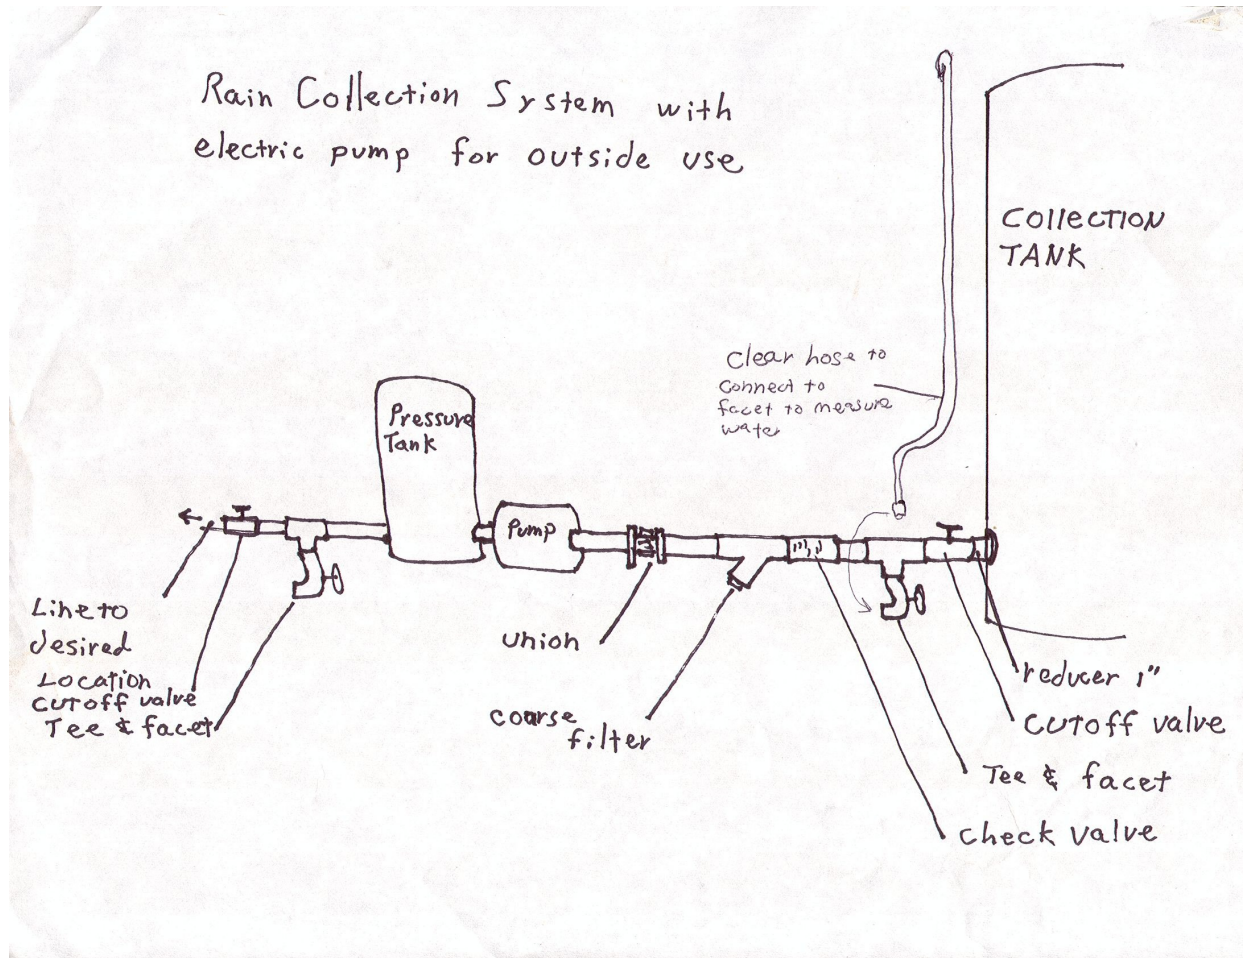 Rain Collection System with
electric pump for outside use
COllECTION
TANK
Clear hose to
connect to
facet to measure
water
Pressure
Tank
Pump
Line to
desired
Location
Cutoff valve
Tee & facet
union
coarse
filter
reducer 1"
CUTOFF valve
Tee & facet
check valve